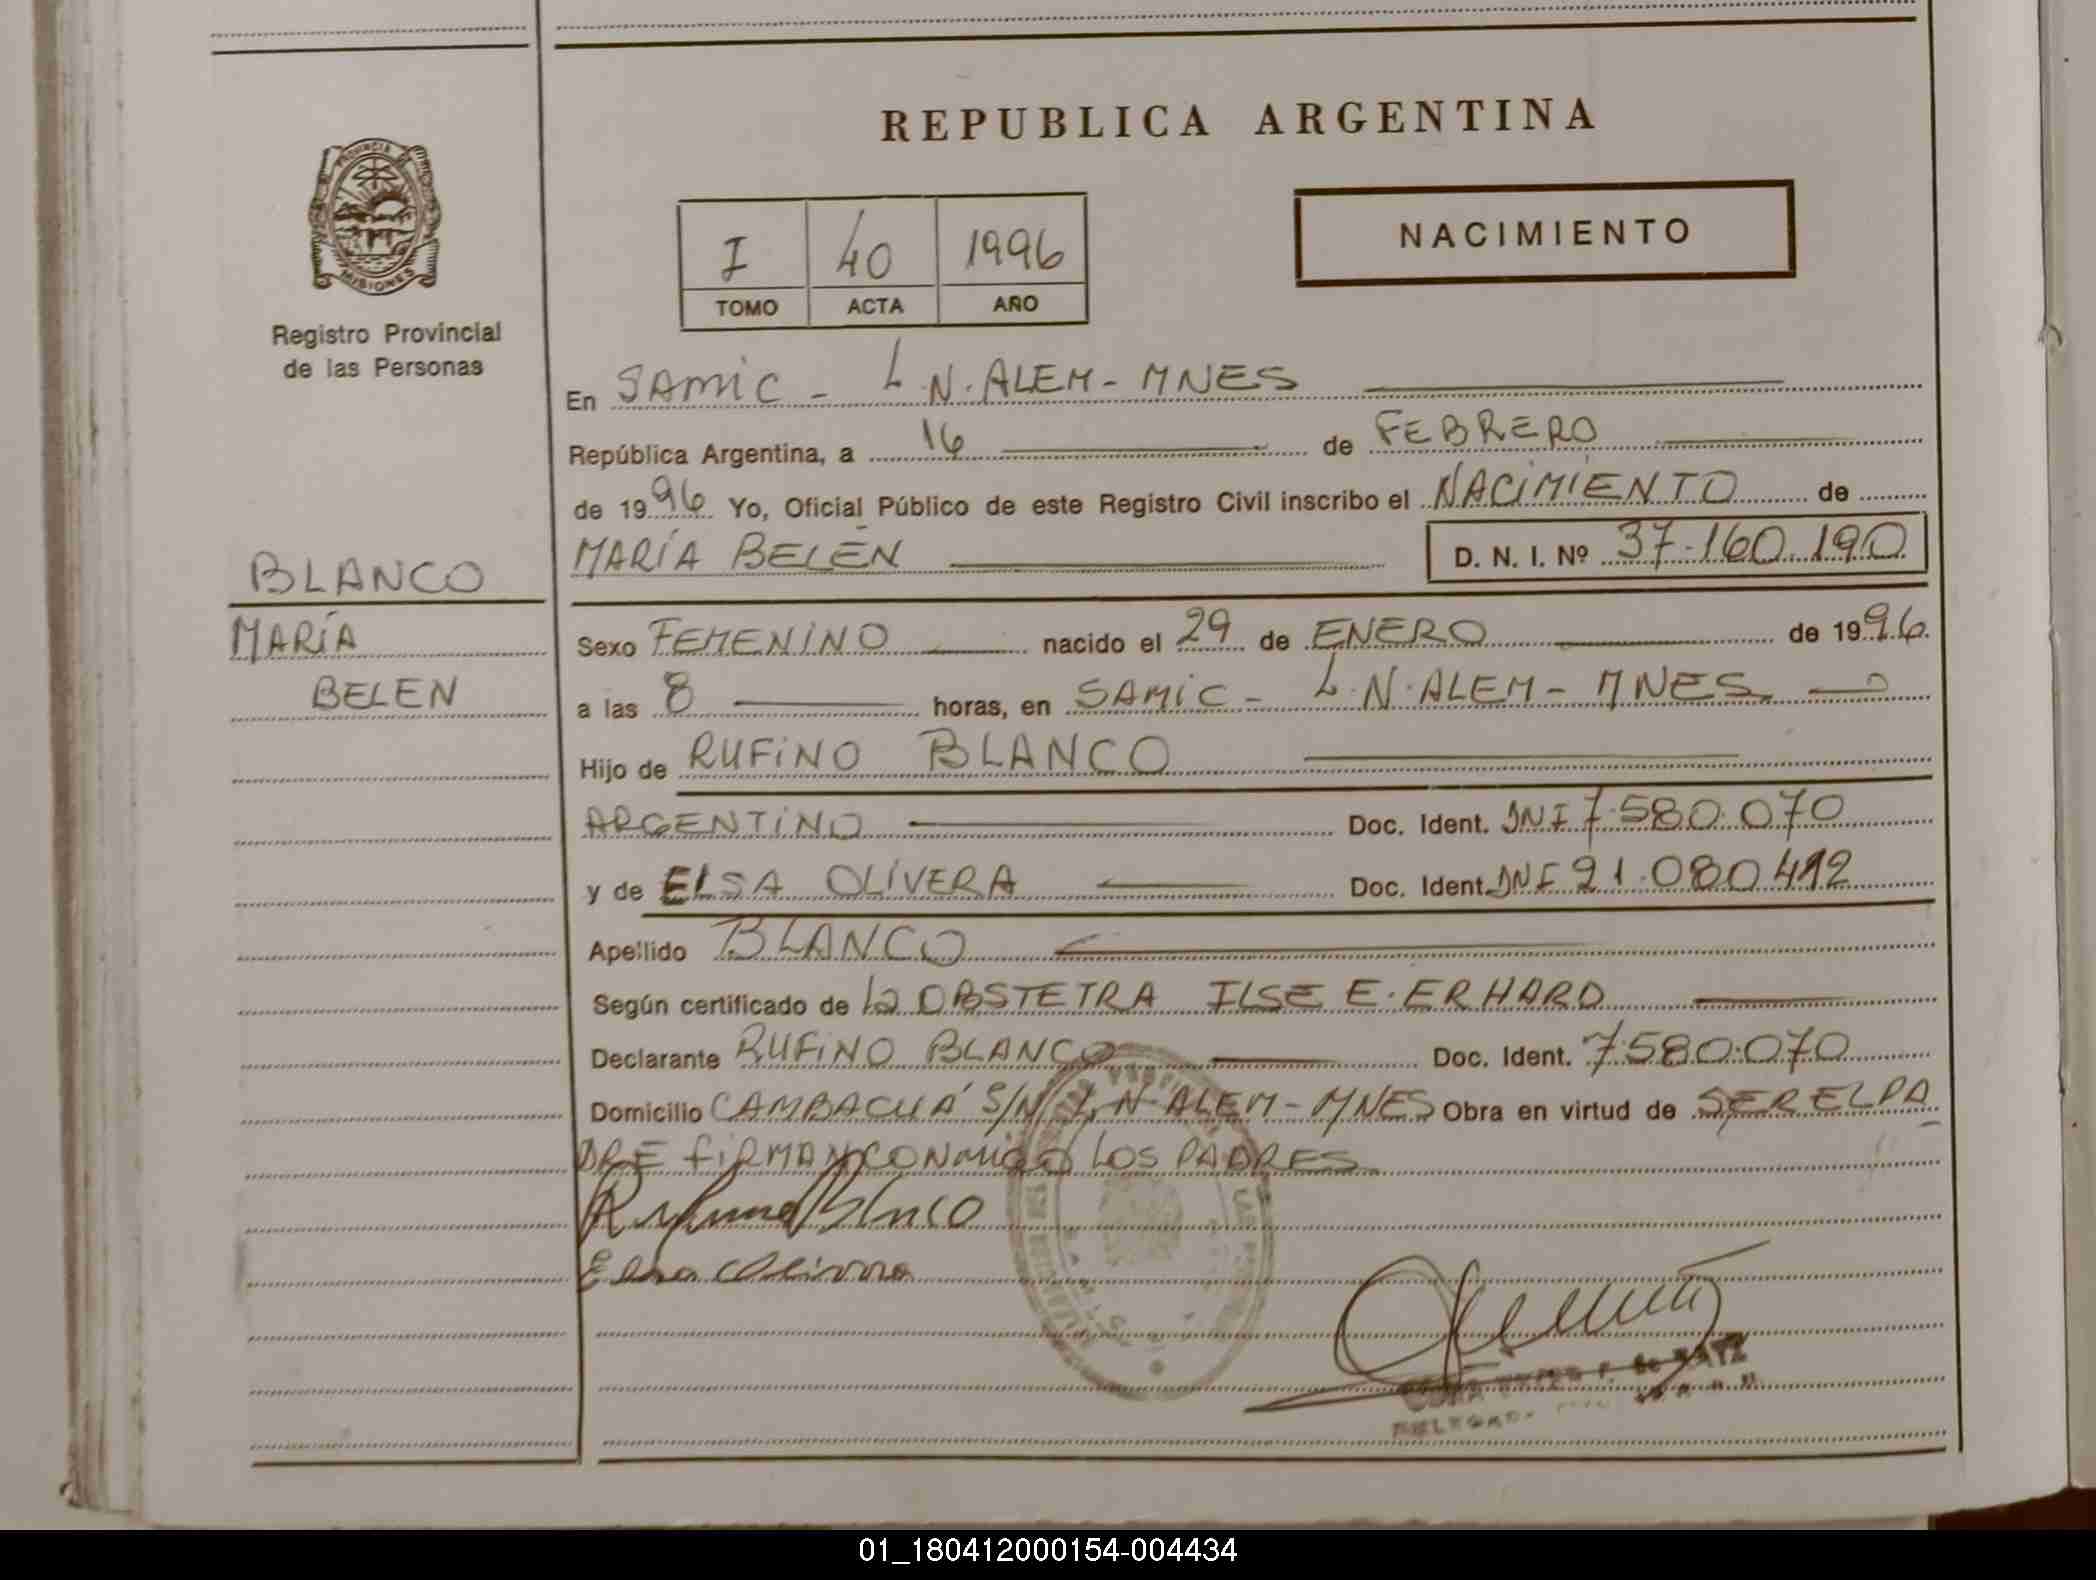 REPUBLICA ARGENTINA
PROVINCIA DE
MISIONES
Registro Provincial
de las Personas
I 40 1996
TOMO ACTA AÑO
NACIMIENTO
En SAMIC - L.N. ALEM - MNES
República Argentina, a 16 de FEBRERO
de 1996 Yo, Oficial Público de este Registro Civil inscribo el NACIMIENTO de
MARÍA BELEN D. N. I. Nº 37.160.190
BLANCO
MARÍA
BELEN
Sexo FEMENINO nacido el 29 de ENERO de 1996.
a las 8 horas, en SAMIC - L.N. ALEM - MNES
Hijo de RUFINO BLANCO
ARGENTINO Doc. Ident. DNI 7.580.070
y de ELSA OLIVERA Doc. Ident. DNI 21.080.412
Apellido BLANCO
Según certificado de la OBSTETRA ILSE E. ERHARD
Declarante RUFINO BLANCO Doc. Ident. 7.580.070
Domicilio CAMBACUÁ S/N L.N ALEM - MNES Obra en virtud de SER EL PA
DRE FIRMAN CONMIGO LOS PADRES
Rufino Blanco
Elsa Olivera
01_180412000154-004434